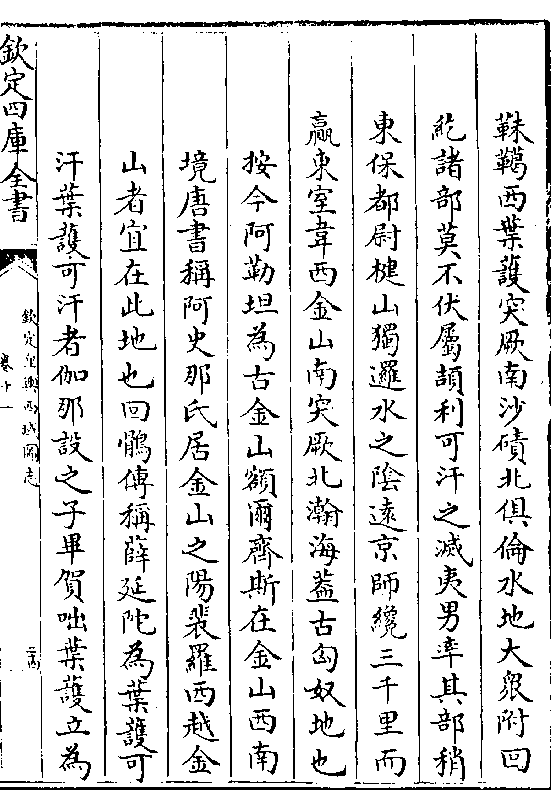 靺鞨西葉護突厥南沙磧北俱倫水地大衆附回
紇諸部莫不伏屬頡利可汗之滅夷男率其部稍
東保都尉楗山獨邏水之陰逺京師纔三千里而
贏東室韋西金山南突厥北瀚海葢古匈奴地也
按今阿勒坦為古金山額爾齊斯在金山西南
境唐書稱阿史那氏居金山之陽裴羅西越金
山者宜在此地也回鶻傳稱薛延陀為葉護可
汗葉護可汗者伽那設之子畢賀咄葉護立為
欽定四庫全書
欽定皇輿西域圖志
卷十一
二十四